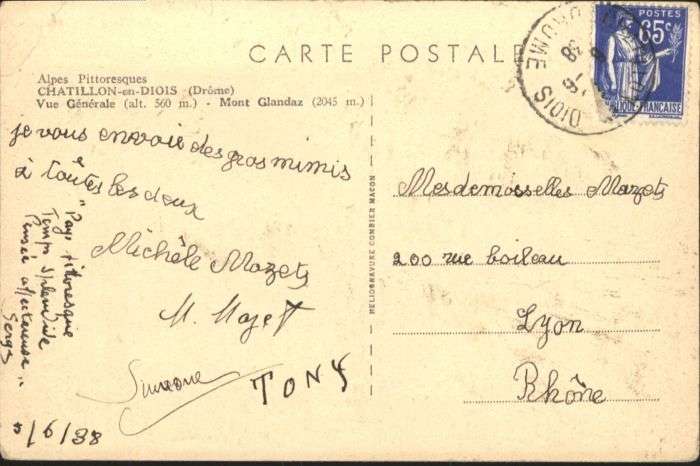 CARTE POSTALE
Alpes Pittoresques
CHATILLON-en-DIOIS (Drôme)
Vue Générale (alt. 560 m.) - Mont Glandaz (2045 m.)
je vous envoie des gros mimis
à toutes les deux
Michèle Mazets
M. Mazet
Simone
TONY
"Pays pittoresque
Temps splendide
Pensée affectueuse"
Serge
/6/38
HELIOGRAVURE COMBIER MACON
POSTES
65c
FRANÇAISE
DIOIS
DROME
38
Mesdemoiselles Mazets
200 rue boileau
Lyon
Rhône